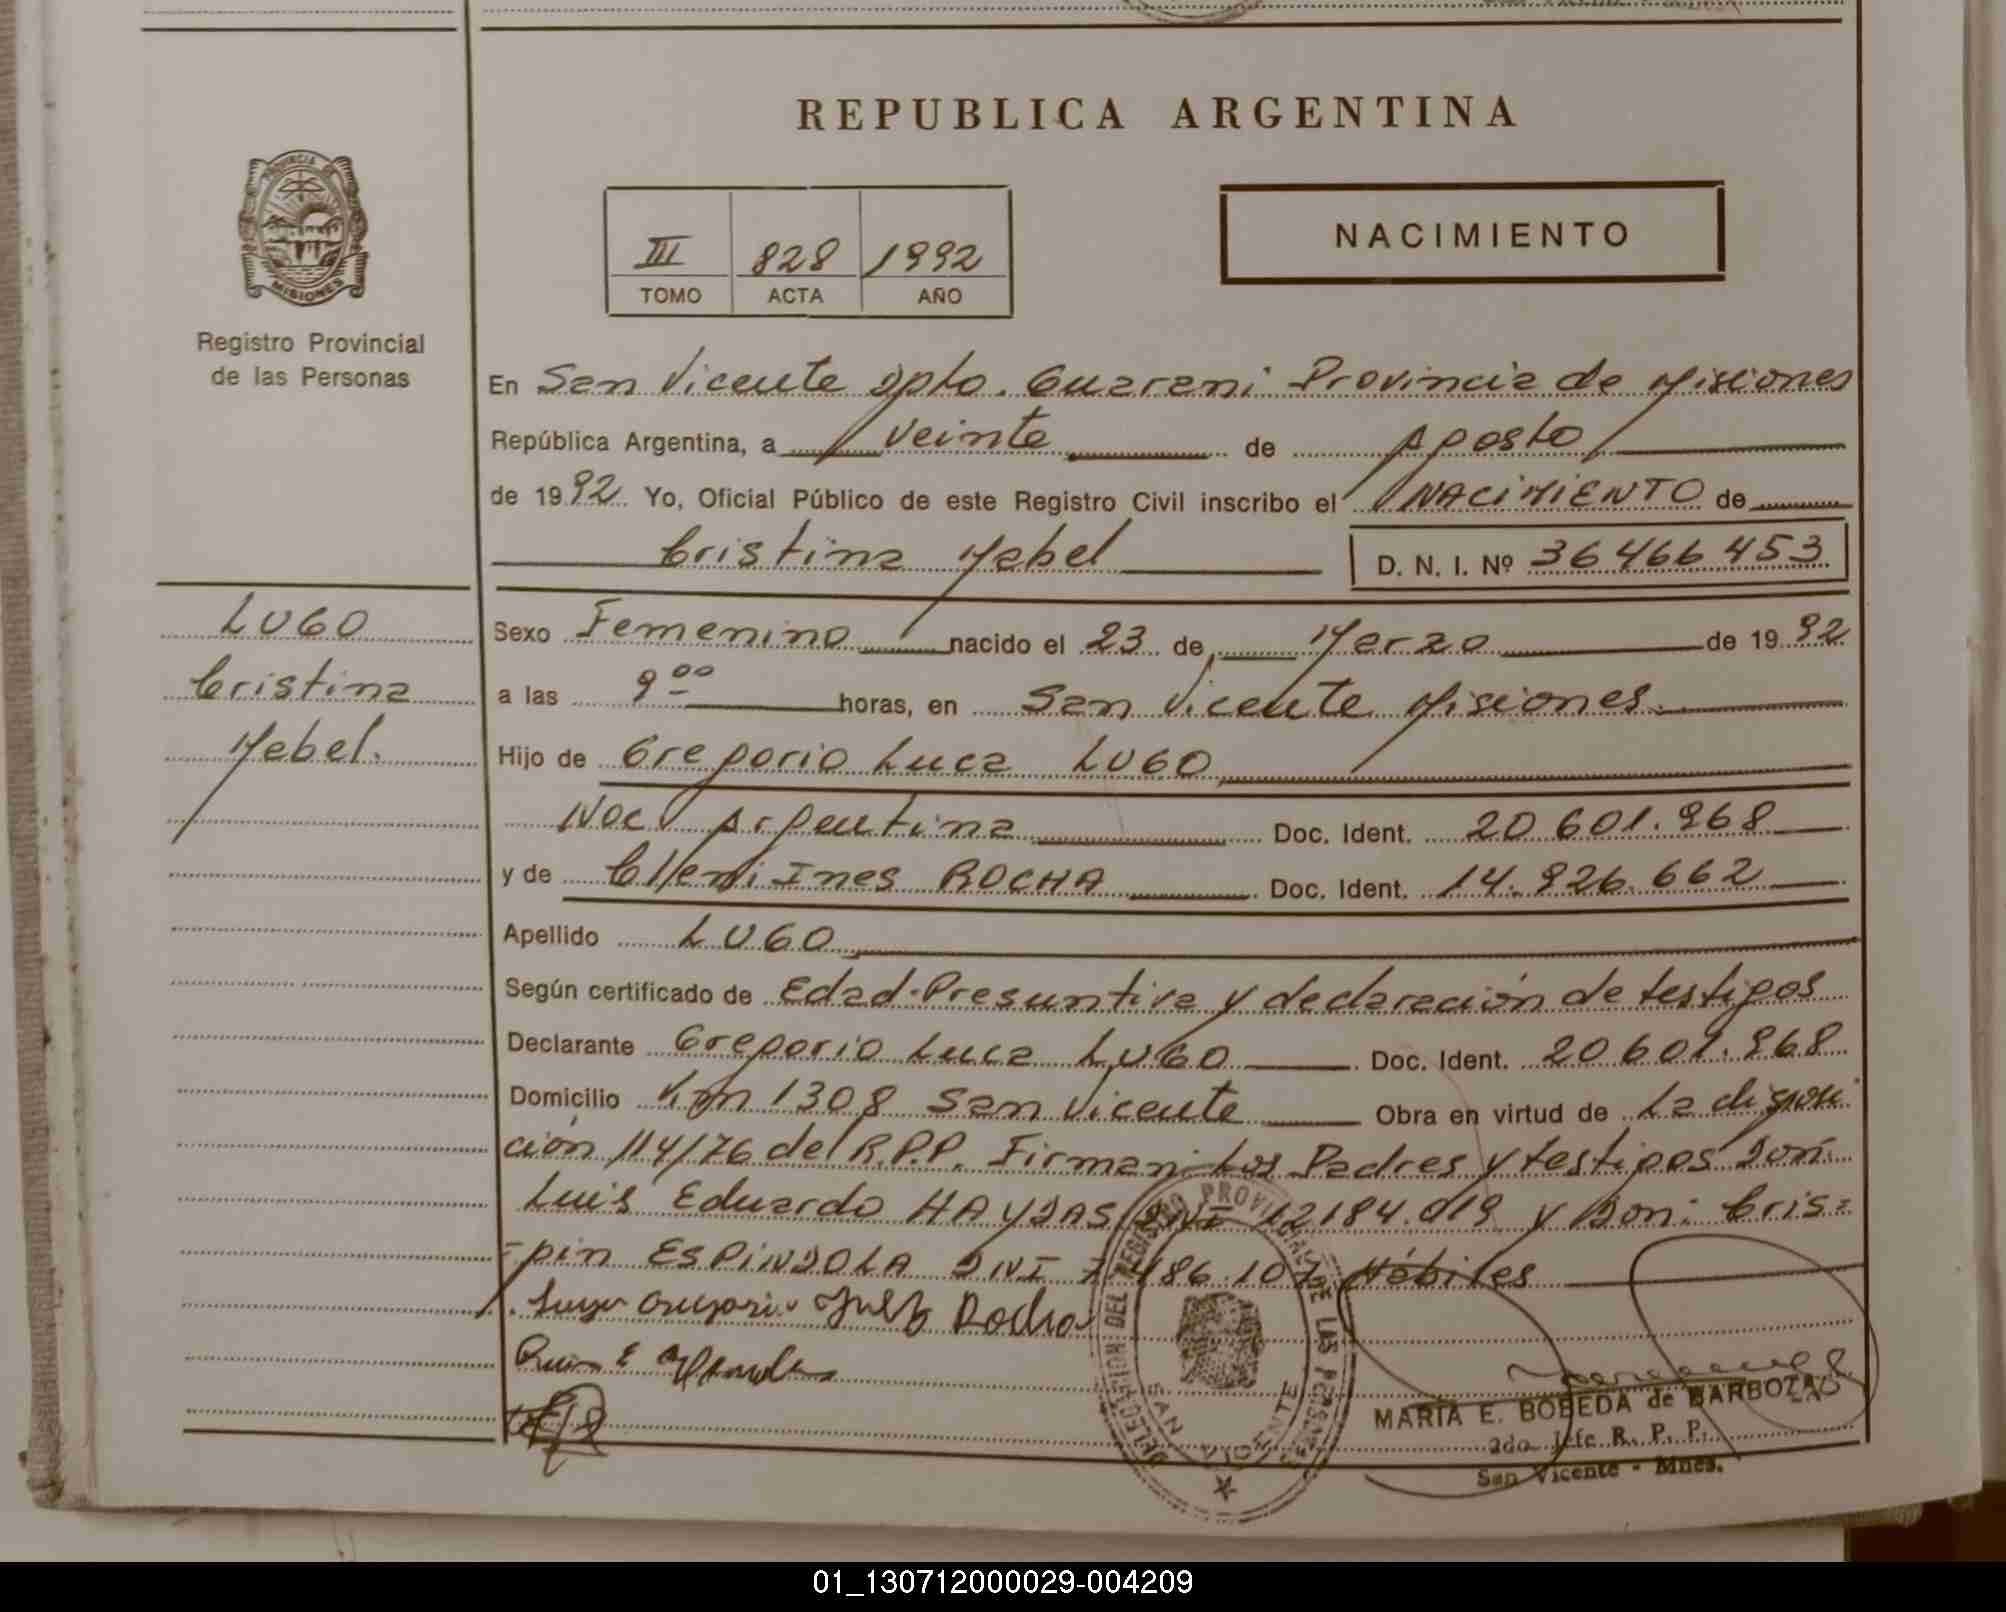 REPUBLICA ARGENTINA
PROVINCIA DE
MISIONES
Registro Provincial
de las Personas
III 828 1992
TOMO ACTA AÑO
NACIMIENTO
En San Vicente Dpto. Guarani Provincia de Misiones
República Argentina, a veinte de Agosto
de 1992 Yo, Oficial Público de este Registro Civil inscribo el NACIMIENTO de
Cristina Mabel D. N. I. Nº 36466453
LUGO
Cristina
Mabel.
Sexo Femenino nacido el 23 de Marzo de 1992
a las 9 00 horas, en San Vicente Misiones.
Hijo de Gregorio Luca LUGO
Nac Argentina Doc. Ident. 20 601.968
y de Clleni Ines ROCHA Doc. Ident. 14.926.662
Apellido LUGO
Según certificado de Edad-Presuntiva y declaración de testigos
Declarante Gregorio Luca LUGO Doc. Ident. 20 601.968
Domicilio Km 1308 San Vicente Obra en virtud de La disposi
ción 114/76 del R.P.P. Firman: Los Padres y testigos Don:
Luis Eduardo HAYDAS DNI 12184.019 y Don: Cris=
=pin ESPINDOLA DNI 7 486.107 Hábiles
Lugo Gregorio Rocha
DELEGACION DEL REGISTRO PROVINCIAL DE LAS PERSONAS
SAN VICENTE
MARIA E. BOBEDA de BARBOZA
2do. Jefe R. P. P.
San Vicente - Mnes.
01_130712000029-004209